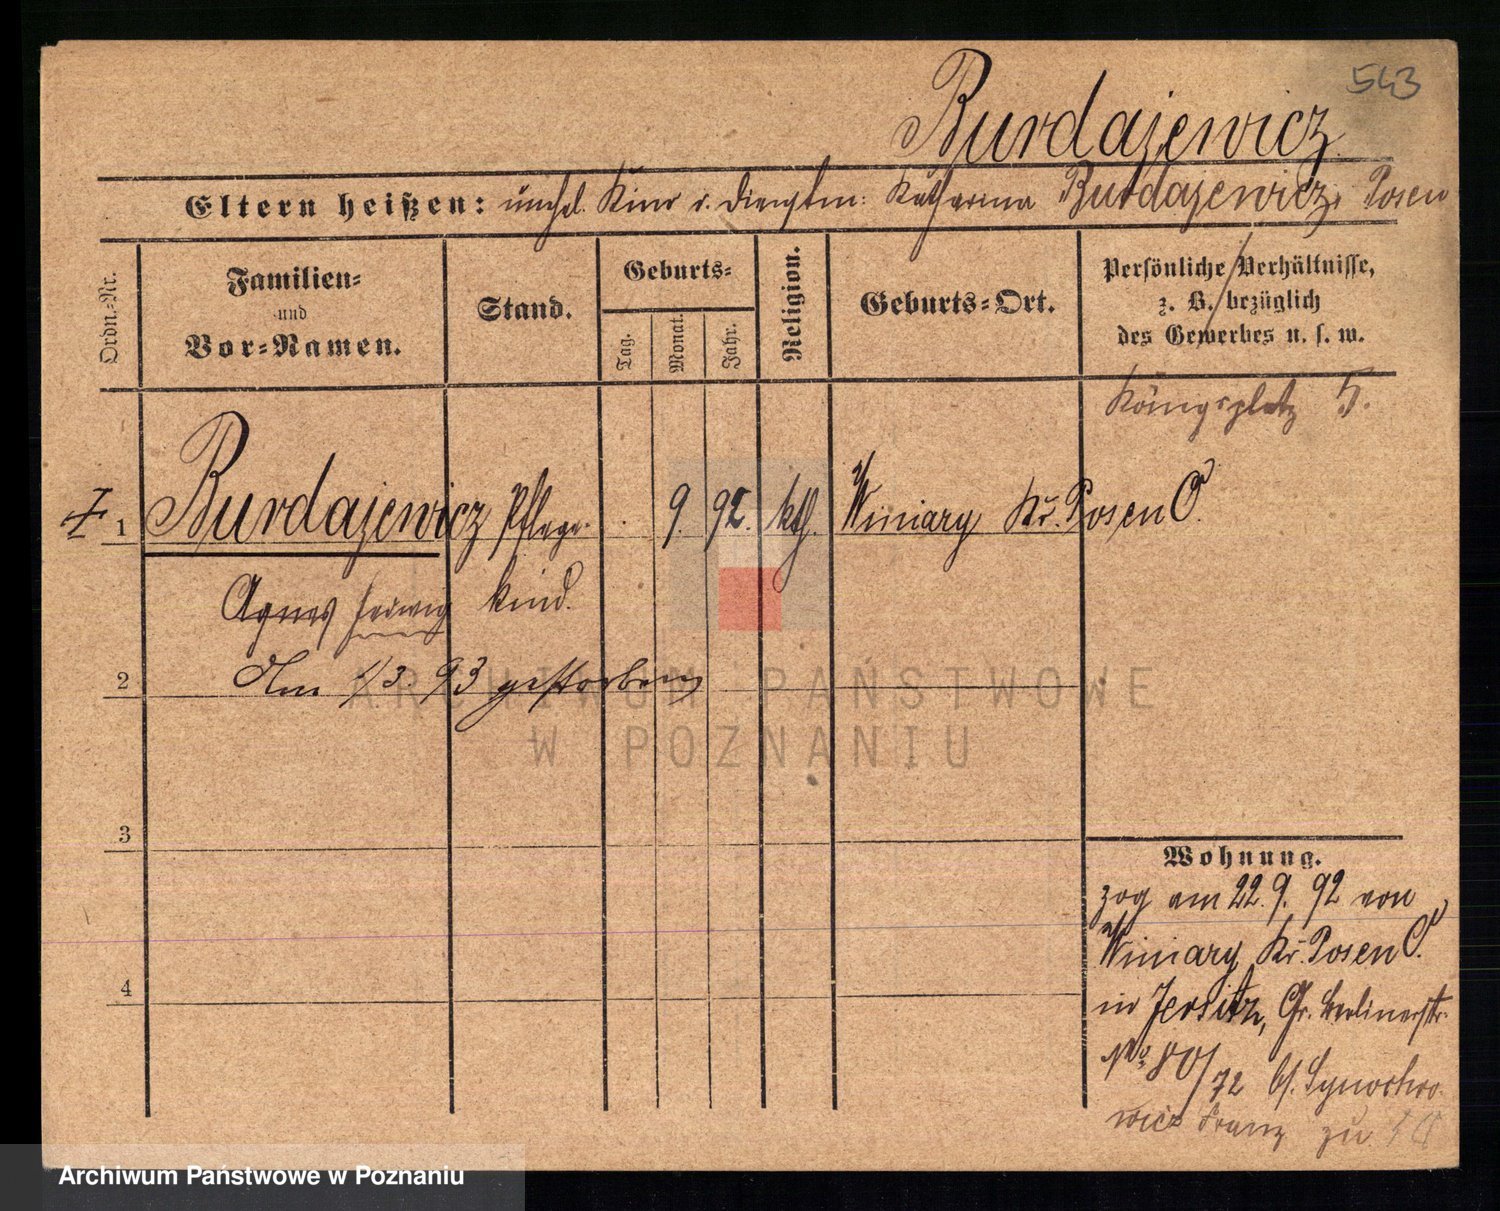 543
Burdajewicz
Eltern heißen: unehel. Kind d. Dienstm: Katharina Burdajewicz, Posen
Königsplatz 5.
Ordn.-Nr.
Familien-
und
Vor-Namen.
Stand.
Geburts-
Tag.
Monat.
Jahr.
Religion.
Geburts-Ort.
Persönliche Verhältnisse,
z. B. bezüglich
des Gewerbes u. s. w.
1 Burdajewicz Pflege- 9. 92. kth. Winiary Kr. Posen O.
Agnes Hedwig kind.
2 Am 1/3. 93 gestorben
3
4
Wohnung.
zog am 22. 9. 92 von
Winiary Kr. Posen O.
in Jersitz, Gr. Berlinerstr.
No 80/72 b/.
wicz Franz zu
ARCHIWUM PAŃSTWOWE
W POZNANIU
Archiwum Państwowe w Poznaniu